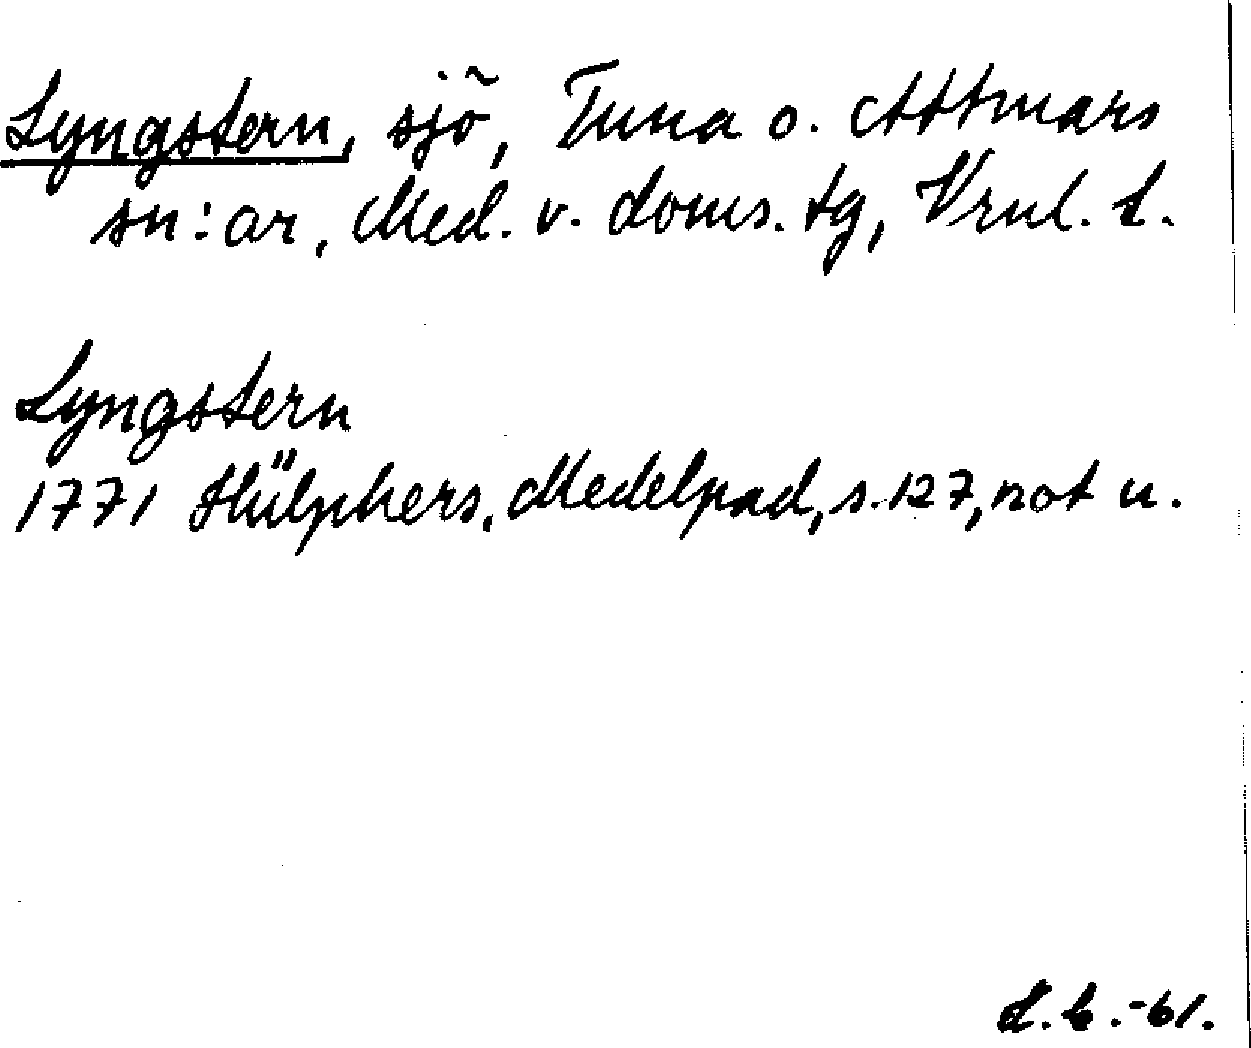 Lyngstern, sjö, Tuna o. Attmars
sn:ar, Med. v. doms. tg, Vrnl. l.
Lyngstern
1771 Hülphers, Medelpad, s. 127, not u.
L.b.-61.